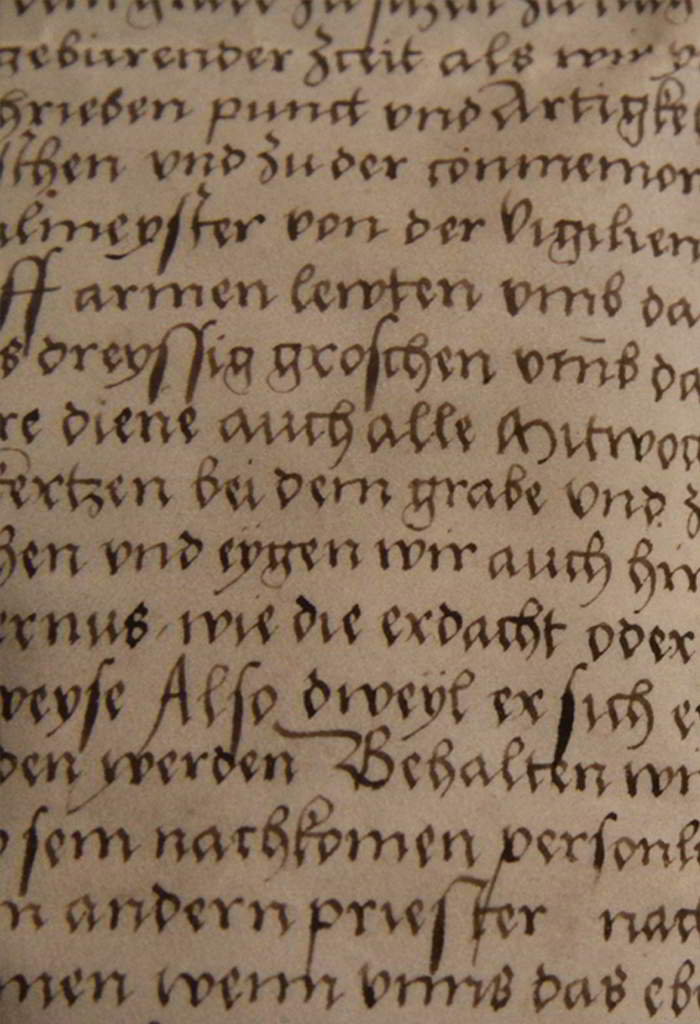 geburender Zceit als wir
hrieben punct vnd Artigkel
schen vnd zu der commemor
almeyster von der Vigilien
ff armen lewten vmb da
s dreyssig groschen vmb da
re diene auch alle Mitwoc
kertzen bei dem grabe vnd
hen vnd eygen wir auch hir
ernus wie die erdacht oder
weyse Also dweyl er sich e
den werden Behalten wi
sein nachkomen personli
n andern priester nach
men wenn vnns das ebe